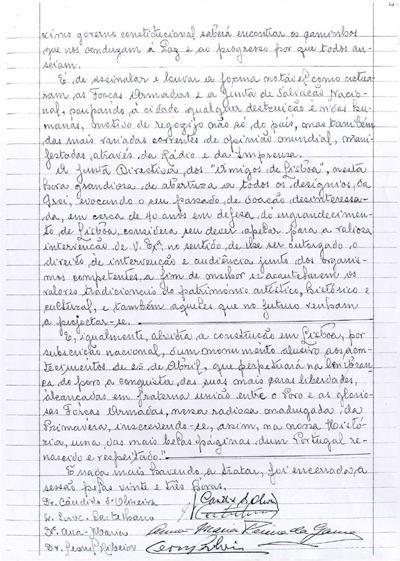 ximo governo constitucional saberá encontrar os caminhos
que nos conduzam à Paz e ao progresso por que todos an-
seiam.
É de assinalar e louvar a forma notável como actua-
ram as Forças Armadas e a Junta de Salvação Nacio-
nal, poupando à cidade qualquer destruição e vidas hu-
manas, motivo de regozijo não só do país, mas também
das mais variadas correntes de opinião mundial, mani-
festadas através da Rádio e da Imprensa.
A Junta Directiva dos "Amigos de Lisboa", nesta
hora grandiosa de abertura a todos os desígnios da
Grei, evocando o seu passado de doação desinteressa-
da, em cerca de 40 anos em defesa do engrandecimen-
to de Lisboa, considera seu dever apelar para a valiosa
intervenção de V. Exª. no sentido de lhe ser outorgado o
direito de intervenção e audiência junto dos organis-
mos competentes, a fim de melhor se acautelarem os
valores tradicionais do património artístico, histórico e
cultural, e também aqueles que no futuro venham
a projectar-se.
E, igualmente, alvitra a construção em Lisboa, por
subscrição nacional, dum monumento alusivo aos acon-
tecimentos de 25 de Abril, que perpetuará na lembran-
ça do povo a conquista das suas mais caras liberdades,
alcançadas em fraterna união entre o Povo e as glorio-
sas Forças Armadas, nessa radiosa madrugada da
Primavera, inscrevendo-se, assim, na nossa Histó-
ria, uma das mais belas páginas dum Portugal re-
nascido e respeitado."
E nada mais havendo a tratar, foi encerrada a
sessão pelas vinte e três horas.
Dr. Cândido d'Oliveira
Dr. Ana Maria Anna Maria Pereira da Gama
Dr. Ribeiro